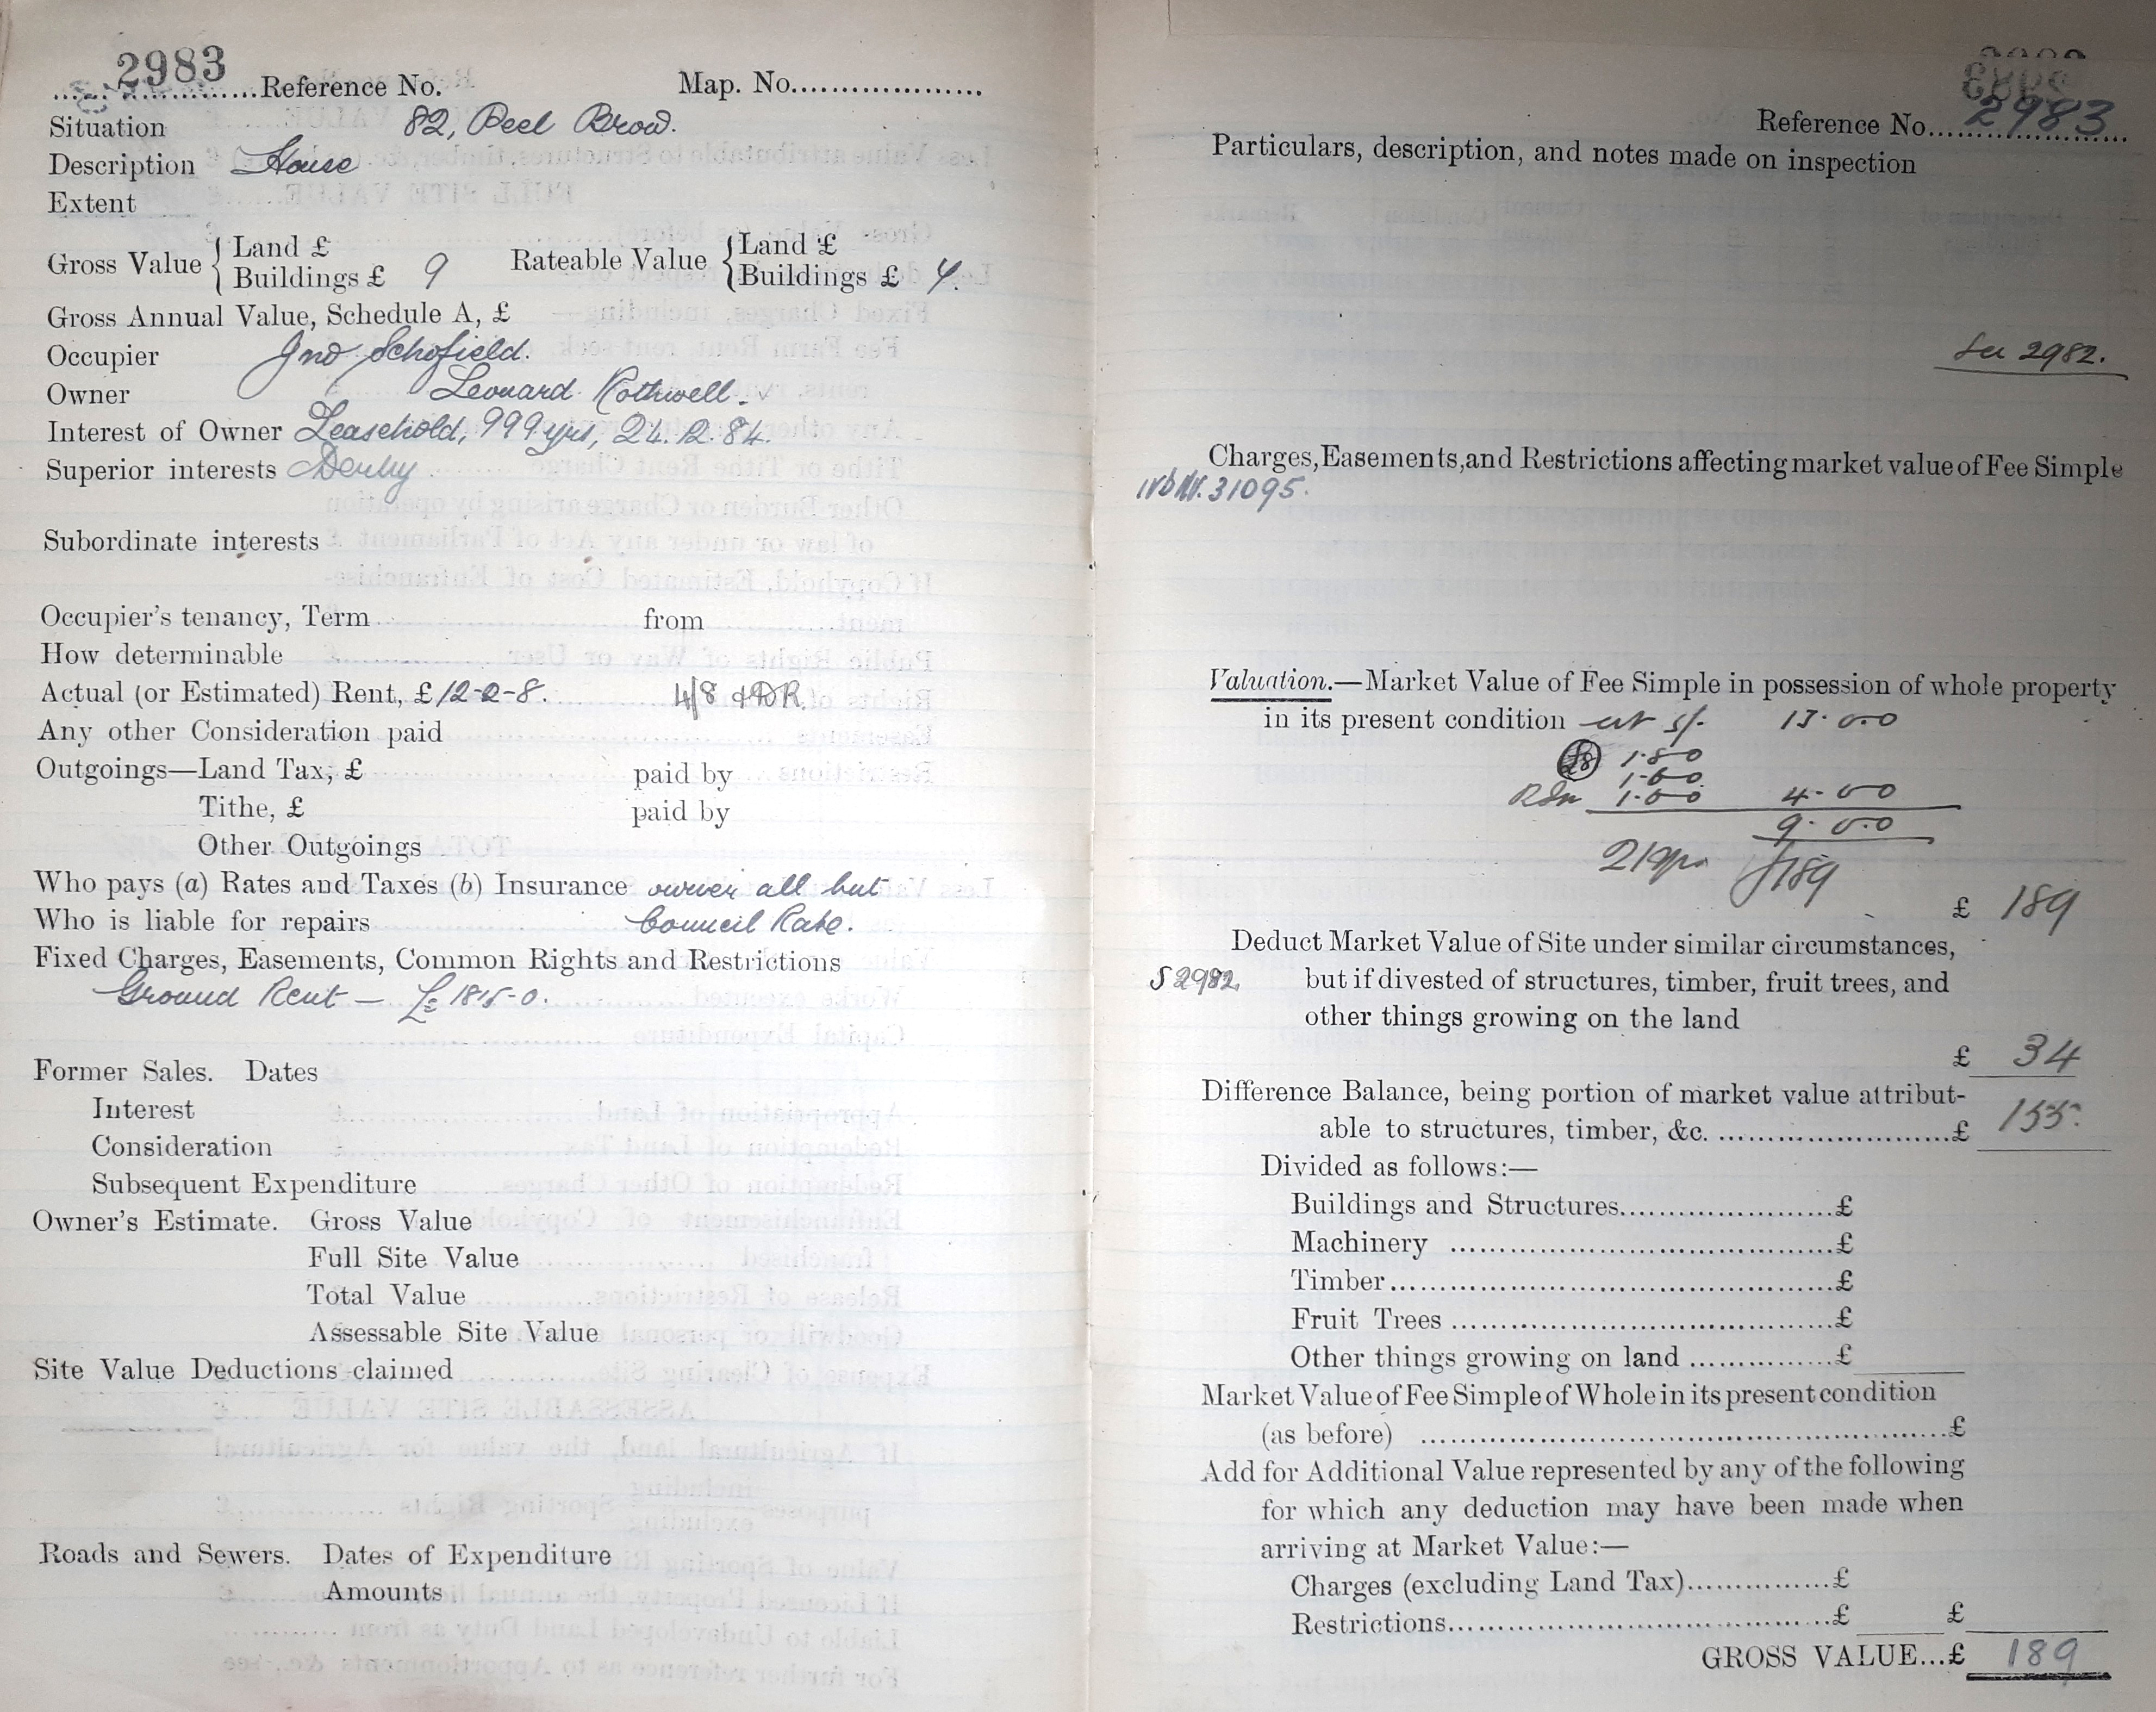 2983
Reference No. Map. No.
Situation 82, Peel Brow.
Description House
Extent
Gross Value { Land £ Rateable Value { Land £
Buildings £ 9 Buildings £
Gross Annual Value, Schedule A, £
Occupier Jno Schofield.
Owner Leonard Rothwell.
Interest of Owner Leasehold, 999 yrs, 24.12.84.
Superior interests Derby
Subordinate interests
Occupier's tenancy, Term from
How determinable
Actual (or Estimated) Rent, £ 12-2-8. 4/8 & DR.
Any other Consideration paid
Outgoings—Land Tax, £ paid by
Tithe, £ paid by
Other Outgoings
Who pays (a) Rates and Taxes (b) Insurance owner all but
Who is liable for repairs Council Rate.
Fixed Charges, Easements, Common Rights and Restrictions
Ground Rent —
Former Sales. Dates
Interest
Consideration
Subsequent Expenditure
Owner's Estimate. Gross Value
Full Site Value
Total Value
Assessable Site Value
Site Value Deductions claimed
Roads and Sewers. Dates of Expenditure
Amounts
Reference No. 2983
Particulars, description, and notes made on inspection
See 2982.
Charges, Easements, and Restrictions affecting market value of Fee Simple
31095.
Valuation.—Market Value of Fee Simple in possession of whole property
in its present condition at 5/- 13.0.0
4.0.0
9.0.0
21 yp £189
£ 189
Deduct Market Value of Site under similar circumstances,
S 2982. but if divested of structures, timber, fruit trees, and
other things growing on the land
£ 34
Difference Balance, being portion of market value attribut-
able to structures, timber, &c. £ 155.
Divided as follows:—
Buildings and Structures £
Machinery £
Timber £
Fruit Trees £
Other things growing on land £
Market Value of Fee Simple of Whole in its present condition
(as before) £
Add for Additional Value represented by any of the following
for which any deduction may have been made when
arriving at Market Value:—
Charges (excluding Land Tax) £
Restrictions £ £
GROSS VALUE...£ 189